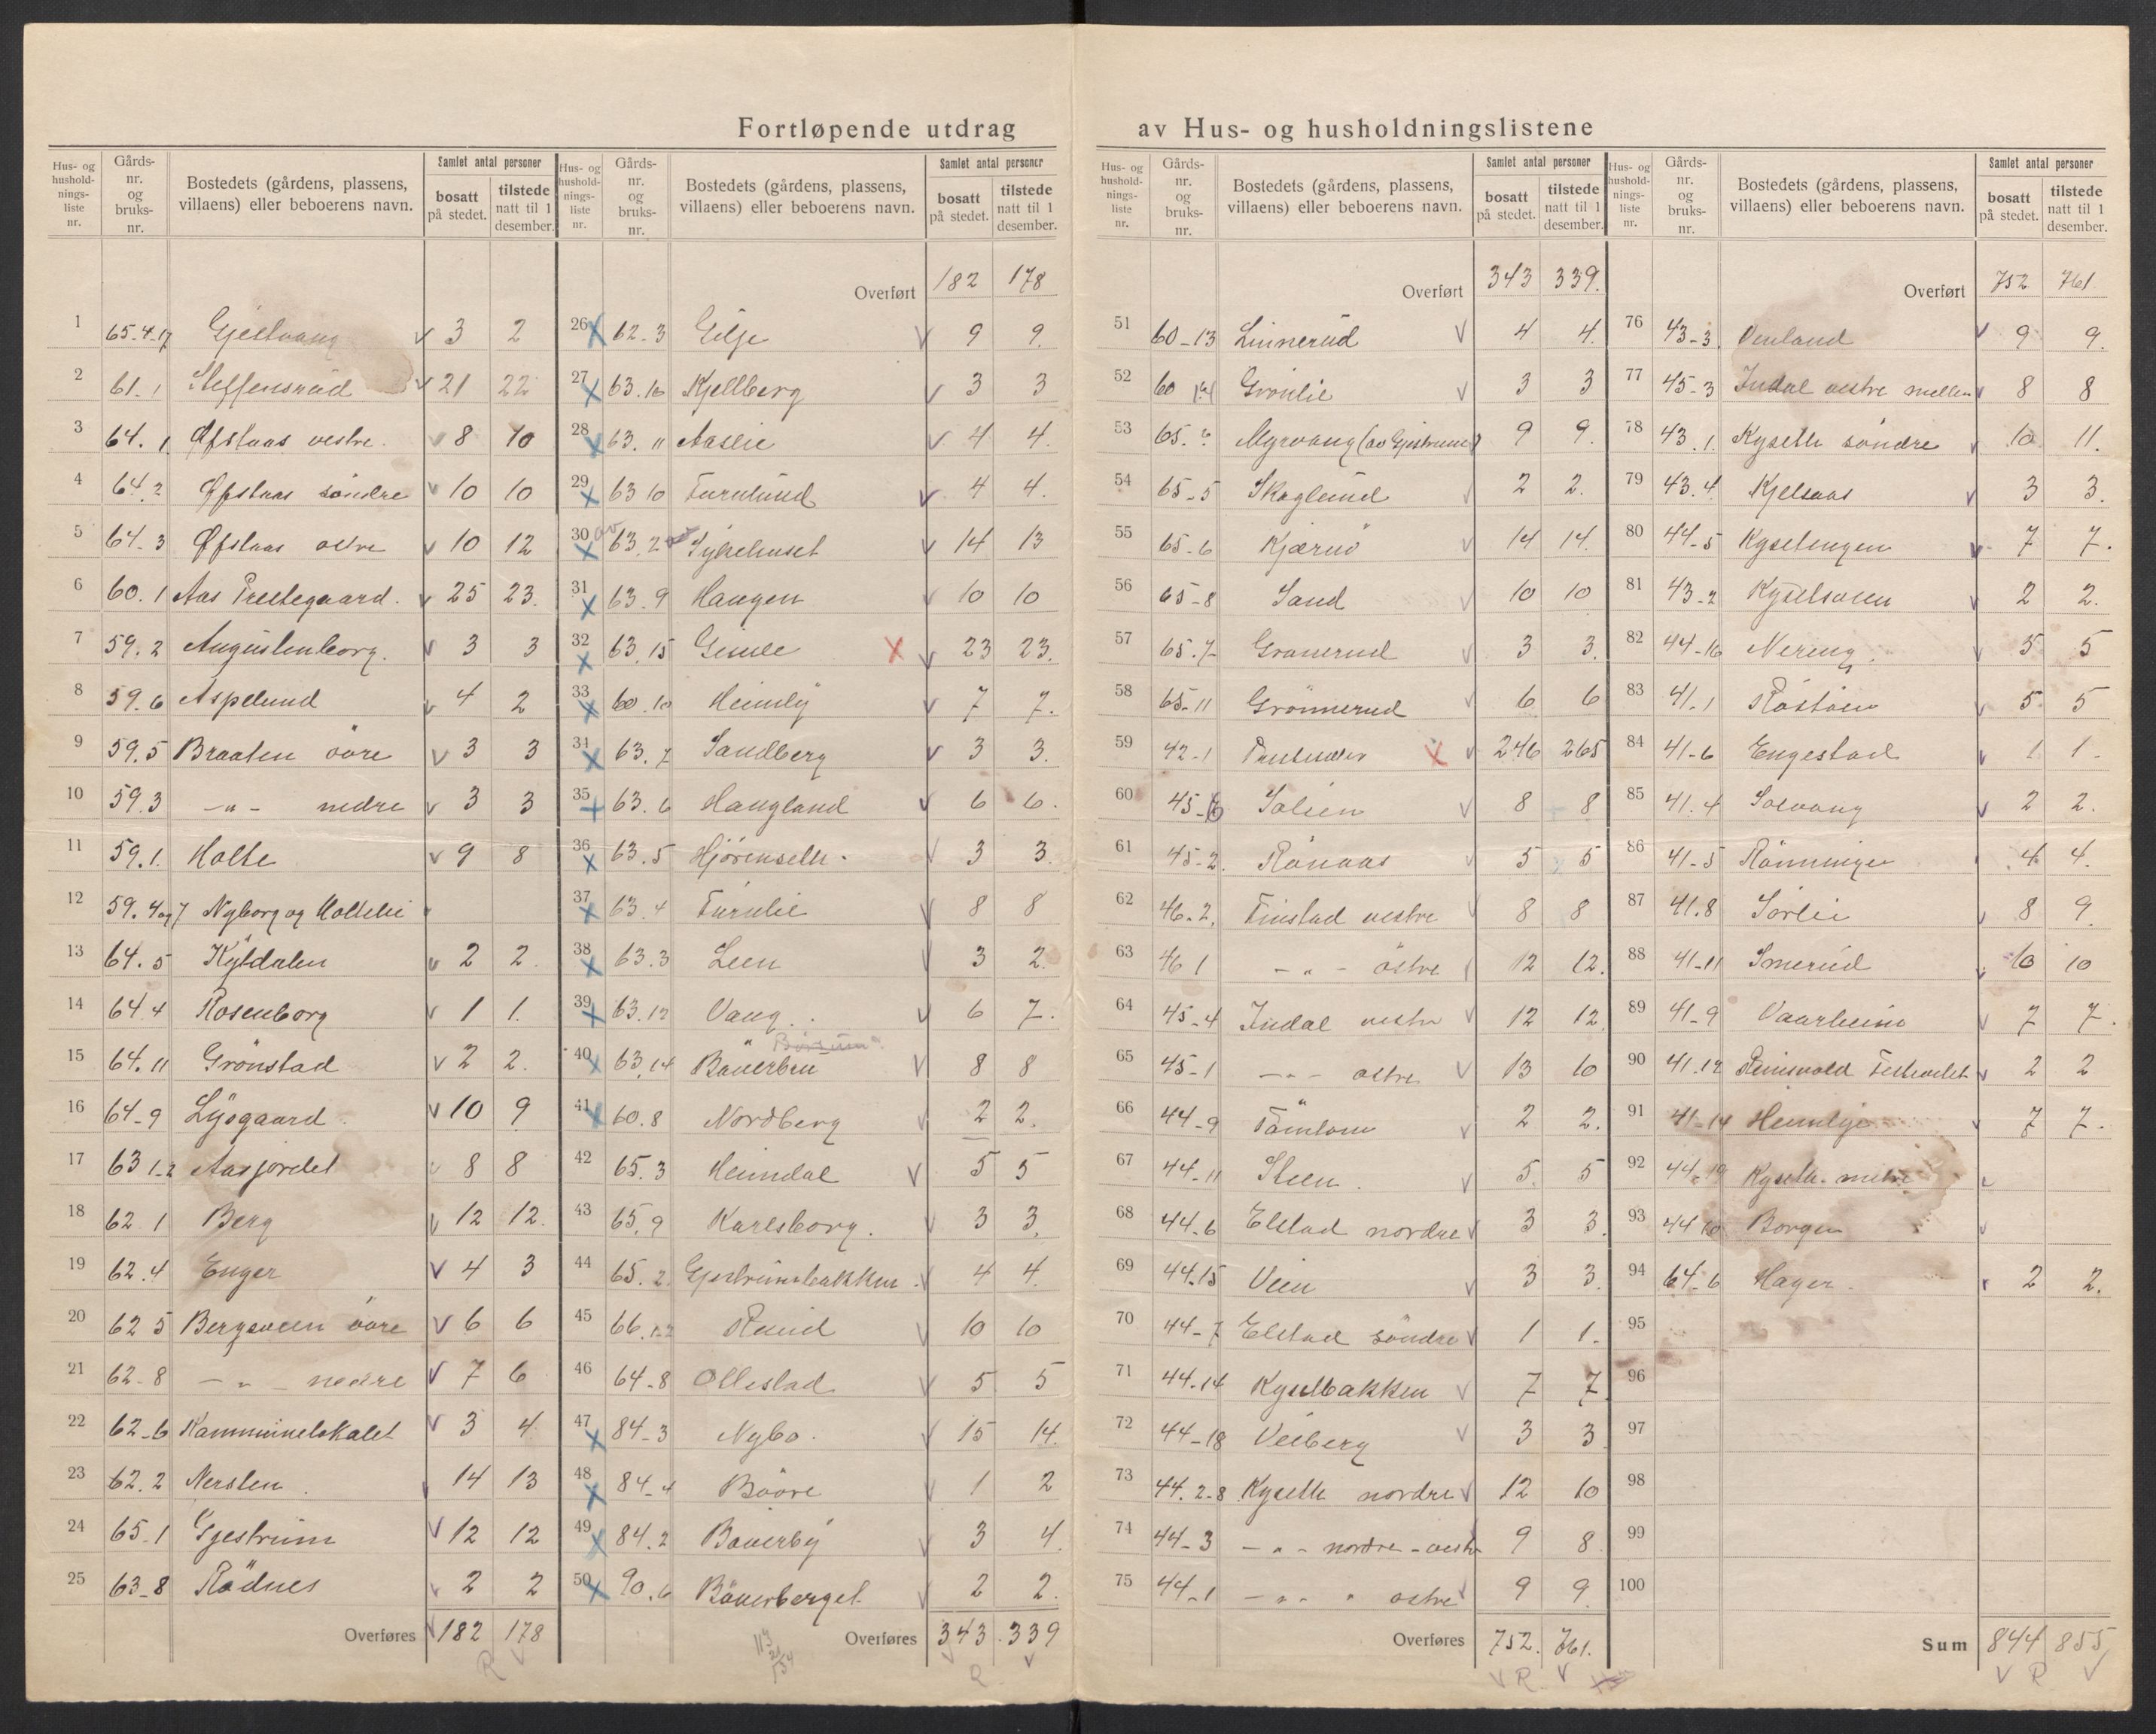 Fortløpende utdrag av Hus- og husholdningslistene
Hus- og husholdnings-liste nr. | Gårds-nr. og bruks-nr. | Bostedets (gårdens, plassens, villaens) eller beboerens navn. | Samlet antal personer bosatt på stedet. | tilstede natt til 1 desember.
1 65-4-17 Gjestvang 3 2
2 61-1 Steffensrud 21 22
3 64.1 Øfstaas vestre. 8 10
4 64.2 Øfstaas söndre 10 10
5 64-3 Øfstaas östre 10 12
6 60.1 Aas Prestegaard. 25 23.
7 59.2 Augustenborg. 3 3
8 59.6 Aspelund 4 2
9 59.5 Braaten övre 3 3
10 59.3 -"- nedre 3 3
11 59.1. Holte 9 8
12 59.4 og 7 Nyborg og Holtelie
13 64.5 Kyldalen 2 2.
14 64.4 Rosenborg 1 1.
15 64.11 Grönstad 2 2.
16 64-9 Lysgaard. 10 9
17 63 1-2 Aasjordet 8 8
18 62 1 Berg 12 12.
19 62.4 Enger 4 3
20 62 5 Bergsveen övre 6 6
21 62-8 -"- nedre 7 6
22 62-6 Kommunelokalet 3 4
23 62.2 Nersten. 14 13
24 65-1 Gjestrum 12 12
25 63-8 Rödnes 2 2
Overføres 182 178
R
Hus- og husholdnings-liste nr. | Gårds-nr. og bruks-nr. | Bostedets (gårdens, plassens, villaens) eller beboerens navn. | Samlet antal personer bosatt på stedet. | tilstede natt til 1 desember.
Overført 182 178
26 62-3 Gilje 9 9.
27 63.16 Kjellberg 3 3
28 63.11 Aaslie 4 4.
29 63 10 Furulund 4 4.
30 av 63.2 Sykehuset 14 13
31 63.9 Haugen 10 10
32 63.15 Gimle X 23 23.
33 60.10 Heimly 7 7.
34 63.7 Sandberg 3 3.
35 63.6 Haugland 6 6.
36 63.5 Hjörnseth. 3 3.
37 63.4 Furulie 8 8
38 63.3 Leen 3 2.
39 63.12 Vang. 6 7.
40 63.14 Böverbru 8 8
41 60.8 Nordberg 2 2.
42 65.3 Heimdal 5 5
43 65.9 Karlsborg. 3 3.
44 65.2 Gjestrumsbakken 4 4.
45 66.1-2 Rud 10 10
46 64-8 Ollestad 5 5
47 84-3 Nybo. 15 14.
48 84-4 Bövre 1 2
49 84.2 Böverby 3 4.
50 90.6 Böverberget 2 2.
Overføres 343. 339
R
Hus- og husholdnings-liste nr. | Gårds-nr. og bruks-nr. | Bostedets (gårdens, plassens, villaens) eller beboerens navn. | Samlet antal personer bosatt på stedet. | tilstede natt til 1 desember.
Overført 343 339.
51 60-13 Linnerud 4 4.
52 60 14 Grönlie 3 3
53 65. Myrvang (av Gjestrum) 9 9.
54 65-5 Skoglund 2 2.
55 65-6 Kjærud 14 14.
56 65-8 Sand 10 10
57 65.7 Granerud 3 3.
58 65-11 Grönnerud 6 6
59 42-1 X 246 265
60 45-6 Solien 8 8
61 45-2. Rönaas 5 5
62 46.2. Finstad vestre 8 8
63 46 1 -"- östre 12 12.
64 45-4 Indal vestre 12 12.
65 45-1 -"- östre 13 10
66 44-9 Tömlom 2 2.
67 44-11 Steen. 5. 5
68 44-6 Elstad nordre 3 3.
69 44.15 Veen 3 3.
70 44-7 Elstad söndre 1 1.
71 44-14 Kysetbakken 7 7
72 44-18 Veiberg 3 3.
73 44.2-8 Kyseth nordre 12 10
74 44-3 -"- nordre-vestre 9 8.
75 44-1 -"- " östre 9 9.
Overføres 752. 761.
R
Hus- og husholdnings-liste nr. | Gårds-nr. og bruks-nr. | Bostedets (gårdens, plassens, villaens) eller beboerens navn. | Samlet antal personer bosatt på stedet. | tilstede natt til 1 desember.
Overført 752 761.
76 43-3. Venland 9 9.
77 45-3 Indal vestre mellem 8 8
78 43.1. Kyseth söndre 10 11.
79 43.4. Kjelsaas 3 3.
80 44-5 Kysetengen 7 7.
81 43-2 Kysetsveen 2 2.
82 44-16 Nereng. 5 5
83 41-1 Röstöen 5 5
84 41-6 Engestad 1 1.
85 41.4 Solvang 2 2.
86 41-5 Rönningen 4 4.
87 41.8 Sörlie 8 9.
88 41-11 Smerud 10 10
89 41-9 Vaarheim 7 7.
90 41.12 Reinsvold 2 2
91 41-14 Heimlye 7 7.
92 44-19 Kyseth
93 44 10 Borgen
94 64-6 Hager. 2 2.
95
96
97
98
99
100
Sum 844 855
R